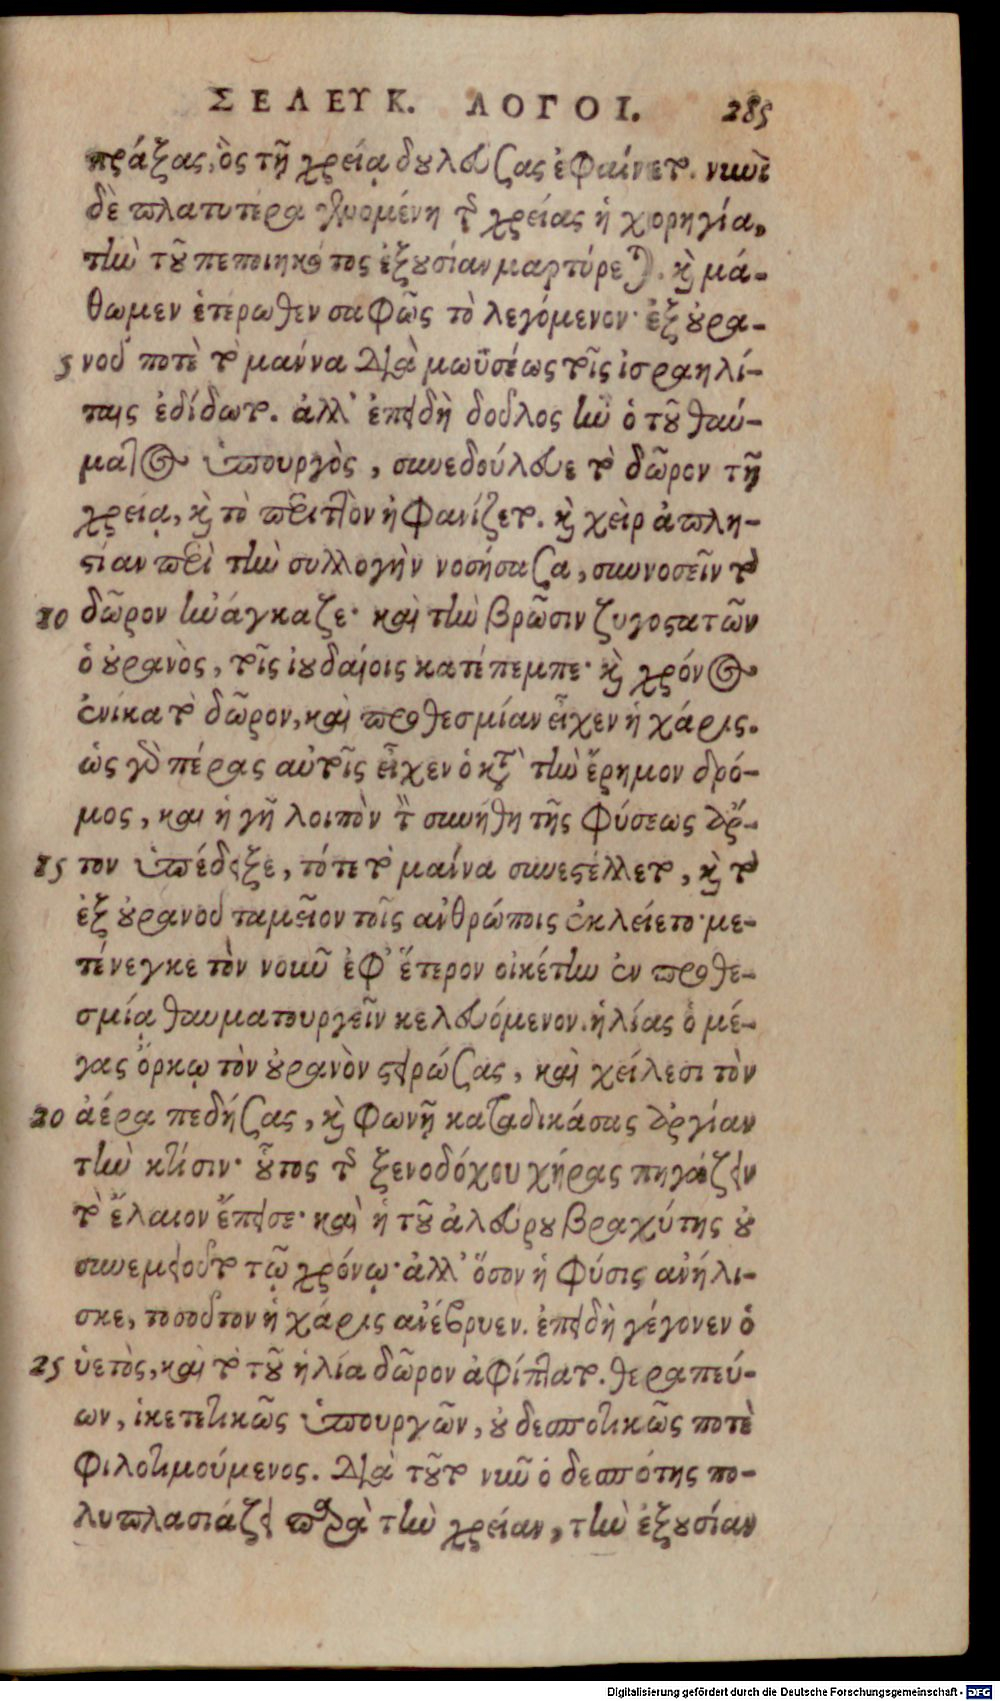 ΣΕΛΕΥΚ. ΛΟΓΟΙ. 285
πράξας, ὃς τῇ χρείᾳ δουλεύσας ἐφαίνετο. νυνὶ
δὲ πλατυτέρα γενομένη τῆς χρείας ἡ χορηγία,
τὴν τοῦ πεποιηκότος ἐξουσίαν μαρτύρεται. καὶ μά-
θωμεν ἑτέρωθεν σαφῶς τὸ λεγόμενον· ἐξ οὐρα-
5 νοῦ ποτὲ τὸ μάννα διὰ μωϋσέως τοῖς ἰσραηλί-
ταις ἐδίδοτο. ἀλλ' ἐπειδὴ δοῦλος ἦν ὁ τοῦ θαύ-
ματος ὑπουργὸς, συνεδούλευε τὸ δῶρον τῇ
χρείᾳ, καὶ τὸ περιττὸν ἠφανίζετο. καὶ χεὶρ ἀπλη-
στίαν περὶ τὴν συλλογὴν νοσήσασα, συννοσεῖν τὸ
10 δῶρον ἠνάγκαζε· καὶ τὴν βρῶσιν ζυγοστατῶν
ὁ οὐρανὸς, τοῖς ἰουδαίοις κατέπεμπε· καὶ χρόνος
ἐνίκα τὸ δῶρον, καὶ προθεσμίαν εἶχεν ἡ χάρις.
ὡς γὰρ πέρας αὐτοῖς εἶχεν ὁ κατὰ τὴν ἔρημον δρό-
μος, καὶ ἡ γῆ λοιπὸν τὸν συνήθη τῆς φύσεως ἄρ-
15 τον ὑπέδειξε, τότε τὸ μάννα συνεστέλλετο, καὶ τὸ
ἐξ οὐρανοῦ ταμεῖον τοῖς ἀνθρώποις ἐκλείετο· με-
τένεγκε τὸν νοῦν ἐφ' ἕτερον οἰκέτην ἐν προθε-
σμίᾳ θαυματουργεῖν κελευόμενον. ἠλίας ὁ μέ-
γας ὅρκῳ τὸν οὐρανὸν στειρώσας, καὶ χείλεσι τὸν
20 ἀέρα πεδήσας, καὶ φωνῇ καταδικάσας ἀργίαν
τὴν κτίσιν· οὗτος τῆς ξενοδόχου χήρας πηγάζειν
τὸ ἔλαιον ἔπεισε· καὶ ἡ τοῦ ἀλεύρου βραχύτης οὐ
συνεμειοῦτο τῷ χρόνῳ· ἀλλ' ὅσον ἡ φύσις ἀνήλι-
σκε, τοσοῦτον ἡ χάρις ἀνέβρυεν. ἐπειδὴ γέγονεν ὁ
25 ὑετὸς, καὶ τὸ τοῦ ἠλία δῶρον ἀφίπτατο. θεραπεύ-
ων, ἱκετικῶς ὑπουργῶν, οὐ δεσποτικῶς ποτὲ
φιλοτιμούμενος. διὰ τοῦτο νῦν ὁ δεσπότης πο-
λυπλασιάζει παρὰ τὴν χρείαν, τὴν ἐξουσίαν
Digitalisierung gefördert durch die Deutsche Forschungsgemeinschaft - DFG